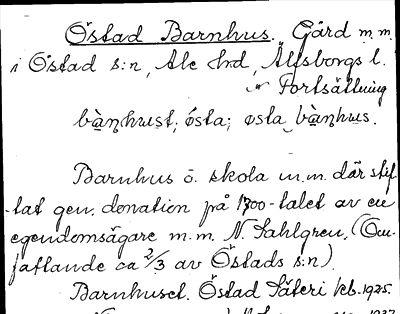 Östad Barnhus. Gård m.m.
i Östad s:n, Ale hd, Älfsborgs l.
Fortsättning
bàn̥hust; ó̄sta; østa bàn̥hus.
Barnhus o. skola m.m. där stif-
tat gen. donation på 1700-talet av en
egendomsägare m.m. N. Sahlgren. (Om-
fattande ca 2/3 av Östads s:n).
Barnhuset. Östad Säteri kb. 1925.